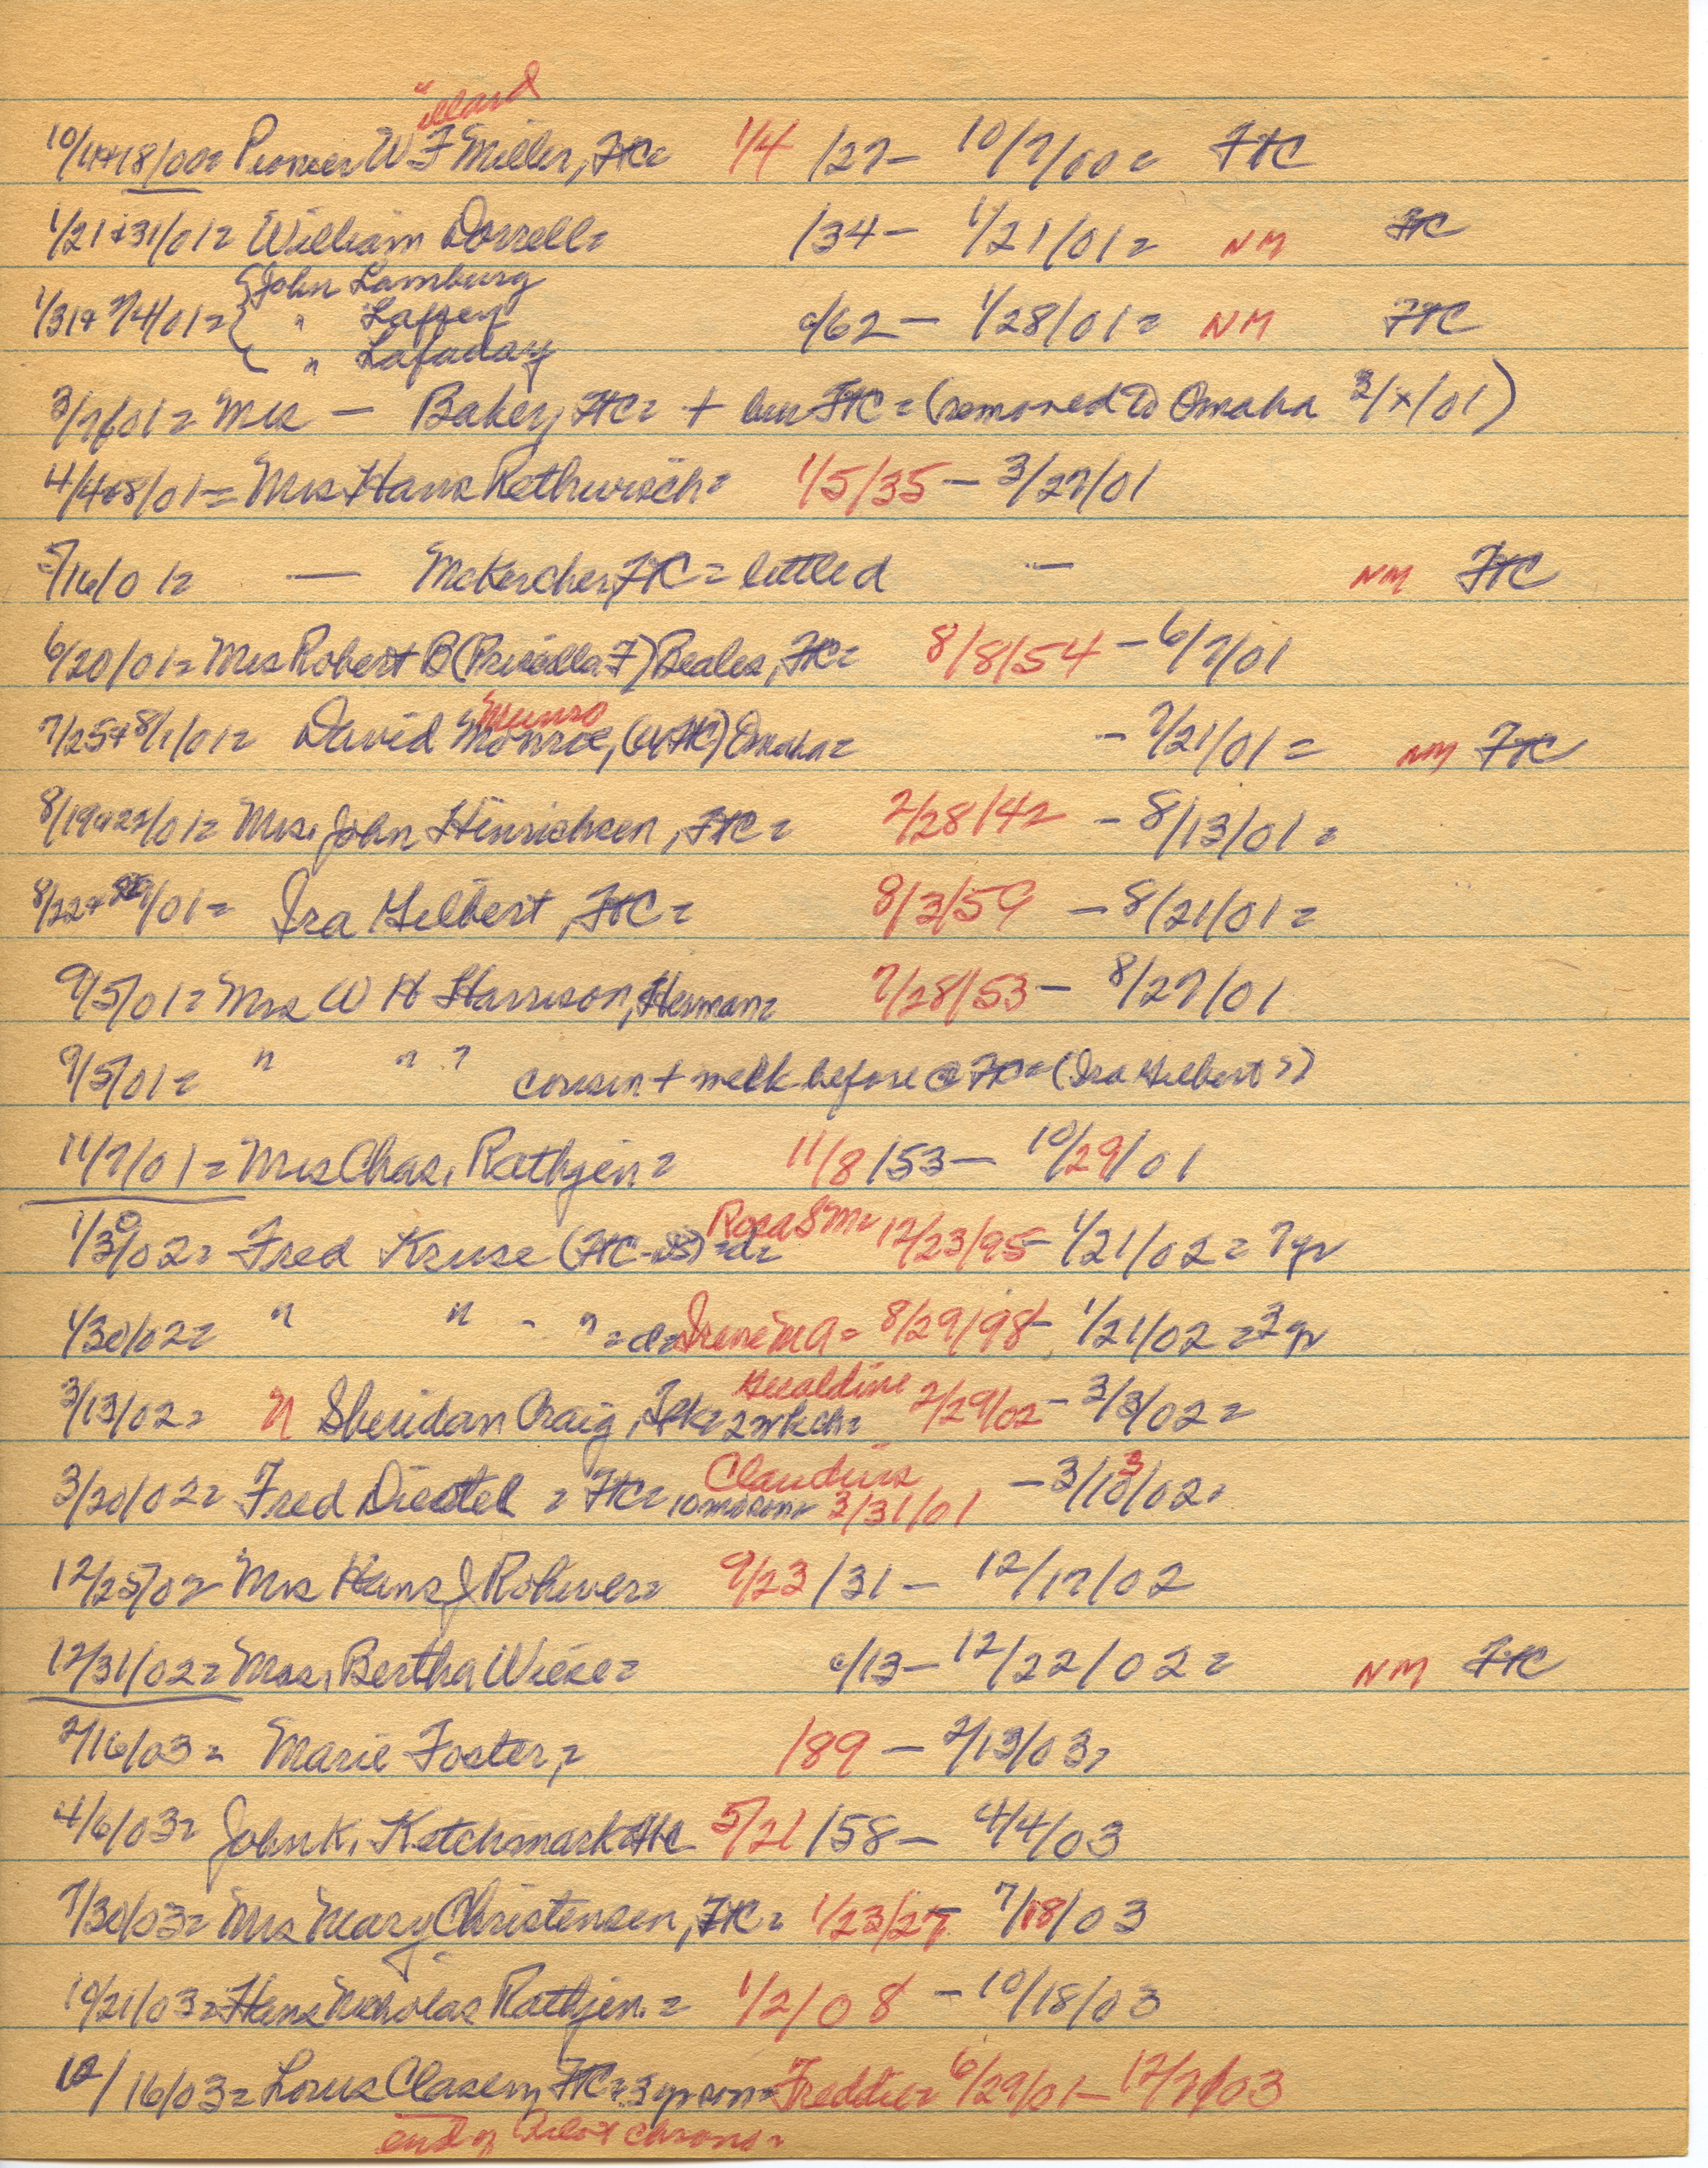 "illard
10/4+18/00= Pioneer W F Miller, FtC= 1/4 /27 – 10/7/00= FtC
1/21+31/01= William Dorrell= /34 – 1/21/01= NM FtC
{John Lamburg
1/31+ 2/4/01= " Lappen c/62 – 1/28/01= NM FtC
" Lafaday
3/7/01= Mrs — Baker, FtC= + bur FtC = (removed to Omaha 3/x/01)
4/4+8/01= Mrs Hans Rethwisch= 1/5/35 – 3/27/01
5/16/01= — McKercher, FtC = — NM FtC
6/20/01= Mrs Robert B (Priscilla F) Beales, FtC= 8/8/54 – 6/7/01
Munro
7/25+8/1/01= David Monroe, (FtC) Omaha= – 7/21/01 = NM FtC
8/19+22/01= Mrs. John Hinrichsen, FtC = 2/28/42 – 8/13/01=
8/22+ /01= Ira Gilbert, FtC = 8/3/59 – 8/21/01=
9/5/01= Mrs W H Harrison, Herman= 7/28/53 – 8/27/01
9/5/01= " " ? cousin + melk before @ FtC= (Ira Gilbert?)
11/7/01= Mrs Chas. Rathjen= 11/8/53 – 10/29/01
1/30/02= Fred Kruse (FtC-)=d= Rosa S M= 12/23/95 – 1/21/02= 7yr
1/30/02= " " - " =d= Irene M A= 8/29/98 – 1/21/02 =3yr
3/13/02= N Sheridan Craig, 2wk ch= Geraldine 2/29/02 – 3/3/02=
3/20/02= Fred Diestel = FtC= 10mo son= Claudius 3/31/01 – 3/13/02=
12/25/02= Mrs Hans J Rohwer= 9/23/31 – 12/17/02
12/31/02= Mrs. Bertha Wiese= c/13 – 12/22/02= NM FtC
2/16/03= Marie Foster,= /89 – 2/13/03=
4/6/03= John K. Ketchmark FtC 5/21/58 – 4/4/03
7/30/03= Mrs Mary Christensen, FtC= 1/23/27 – 7/18/03
10/21/03= Hans Nicholas Rathjen.= 1/2/08 – 10/18/03
12/16/03= Louis Clasen, FtC=3yr son= Freddie= 6/29/01 – 12/7/03
end of Pilot chrono=